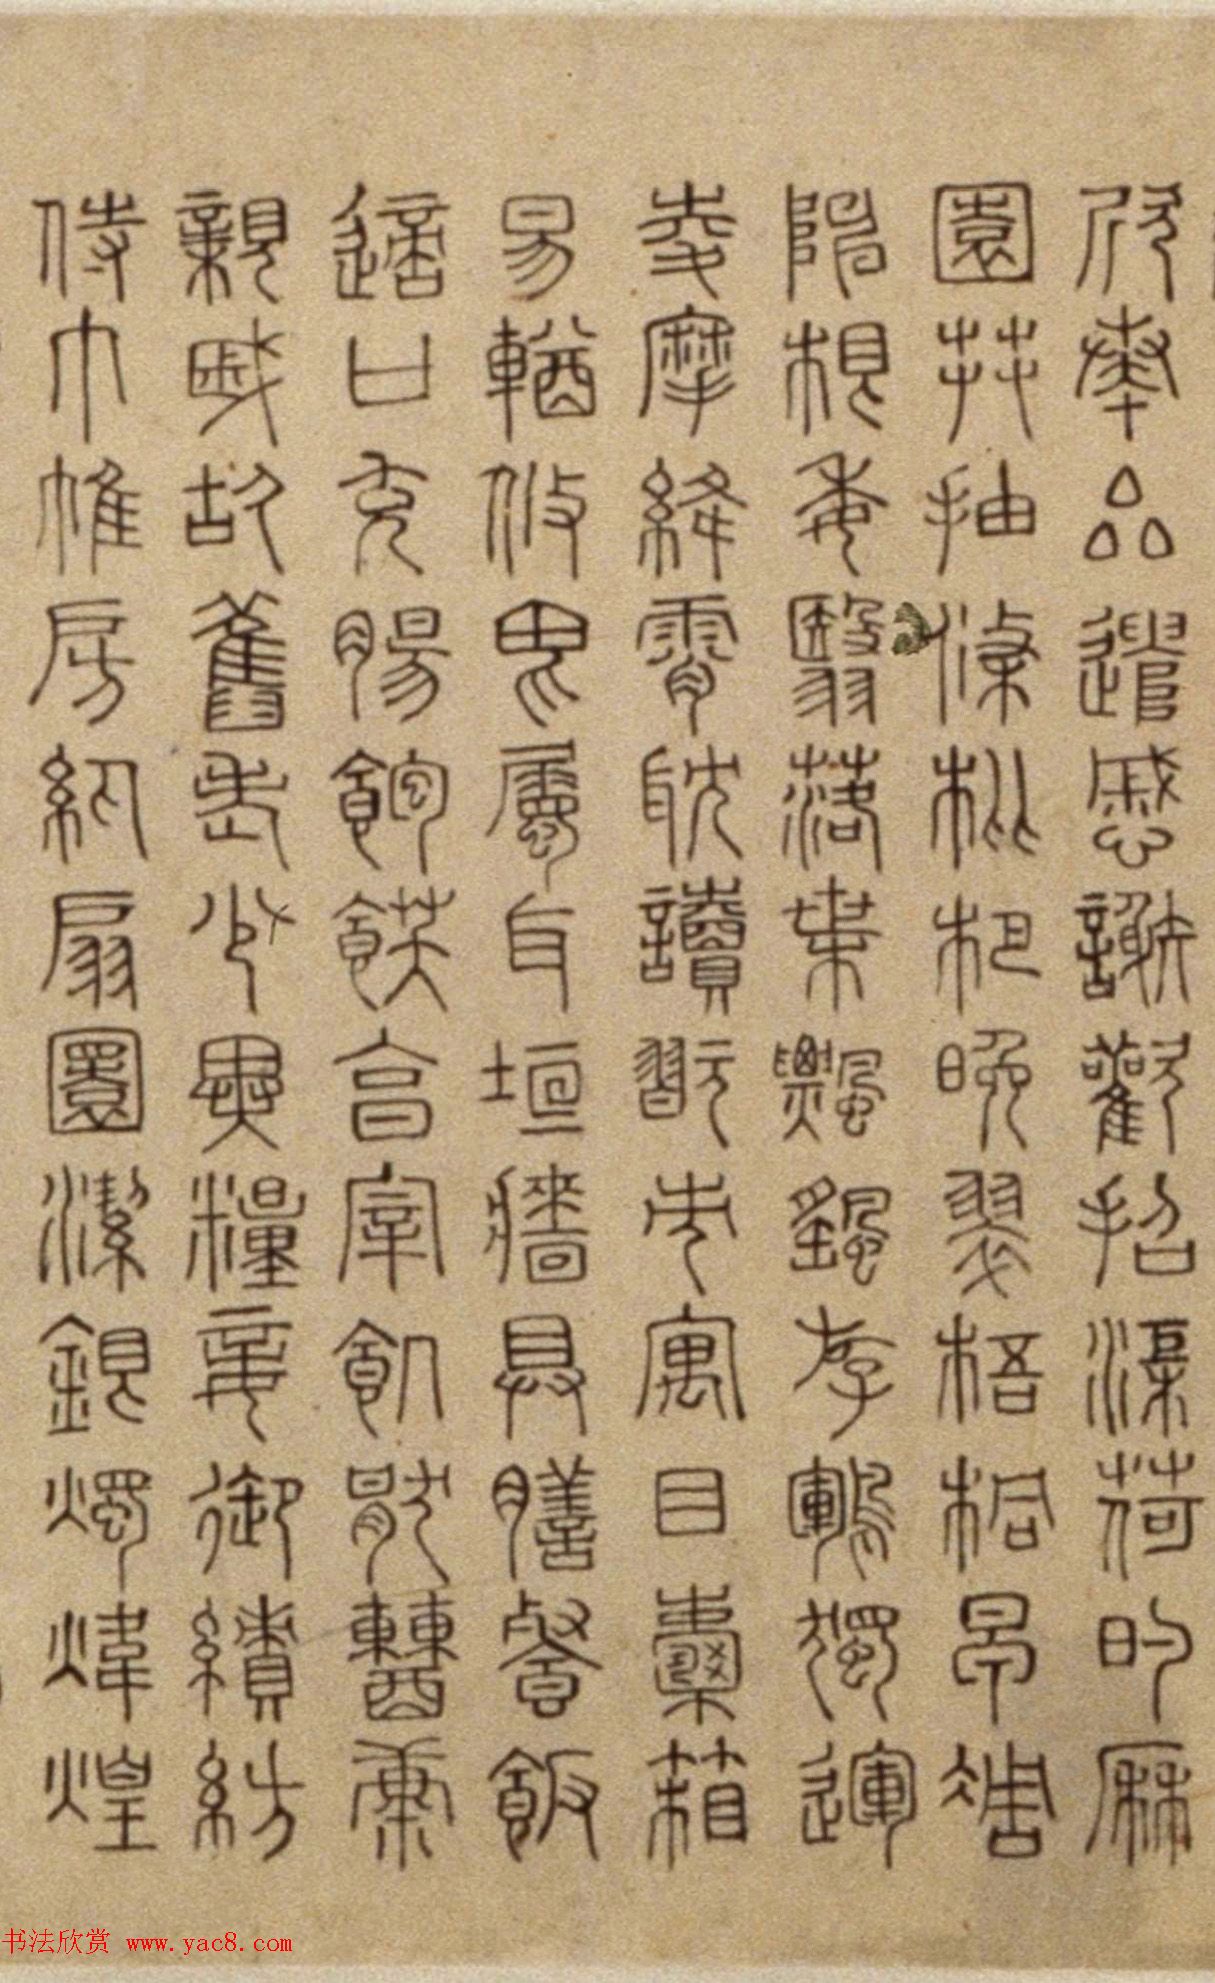 欣奏累遣慼謝歡招渠荷的歷
園莽抽條枇杷晚翠梧桐早凋
陳根委翳落葉飄颻游鵾獨運
凌摩絳霄耽讀翫市寓目囊箱
易輶攸畏屬耳垣牆具膳飡飯
適口充腸飽飫享宰飢厭糟糠
親戚故舊老少異糧妾御績紡
侍巾帷房紈扇圓潔銀燭煒煌
书法欣赏 www.yac8.com